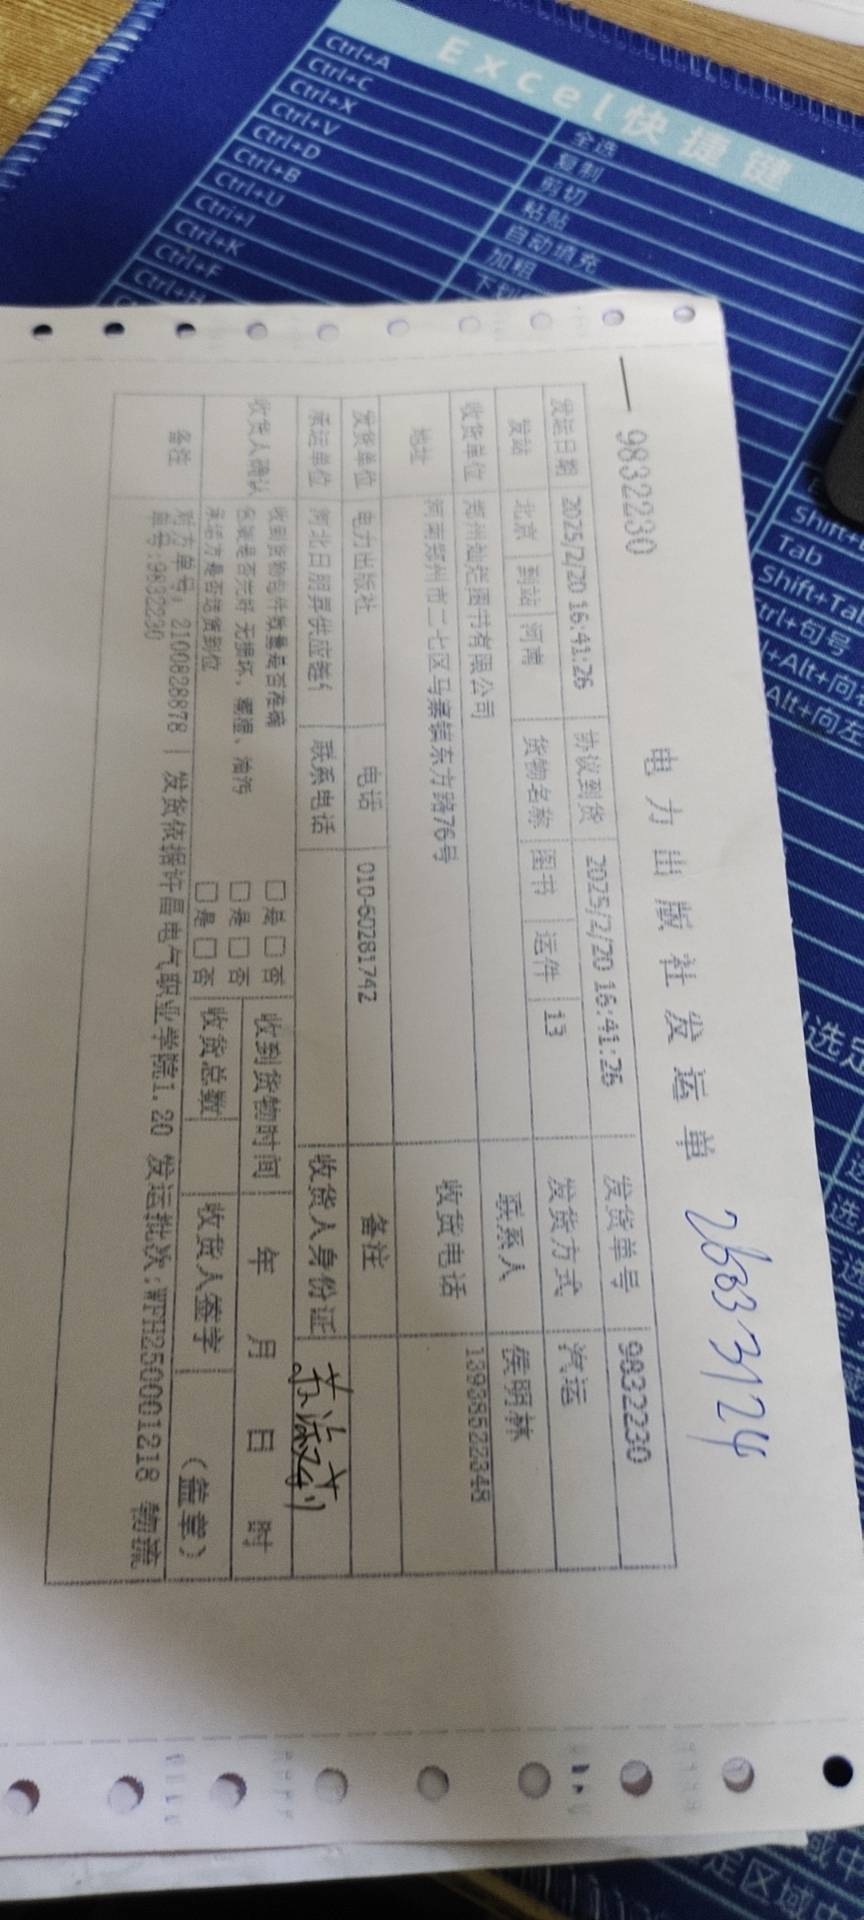 Excel快捷键
Ctrl+A 全选
Ctrl+C 复制
Ctrl+X 剪切
Ctrl+V 粘贴
Ctrl+D 自动填充
Ctrl+B 加粗
Ctrl+U
Ctrl+I
Ctrl+K
Ctrl+F
Ctrl+H
Tab
Shift+Tab
电力出版社发运单 2503 3124
9832230
发运日期 2025/2/20 16:41:26 协议到货 2025/2/20 16:41:26 发货单号 9832230
发站 北京 到站 河南 货物名称 图书 运件 13 发货方式 汽运
收货单位 郑州灿烂图书有限公司 联系人 侯明林
地址 河南郑州市二七区马寨镇东方路76号 收货电话 13938522348
发货单位 电力出版社 电话 010-60281742 备注
承运单位 河北日朋昇供应链 联系电话 收货人身份证
收货人确认 收到货物包件数量是否准确 □是 □否 收到货物时间 年 月 日 时
包装是否完好 无损坏、潮湿、油污 □是 □否
承运方是否送货到位 □是 □否 收货总数 收货人签字 (盖章)
备注 对方单号:2100828878 | 发货依据许昌电气职业学院1.20 发运批次:WFH250001218 物流
单号:9832230